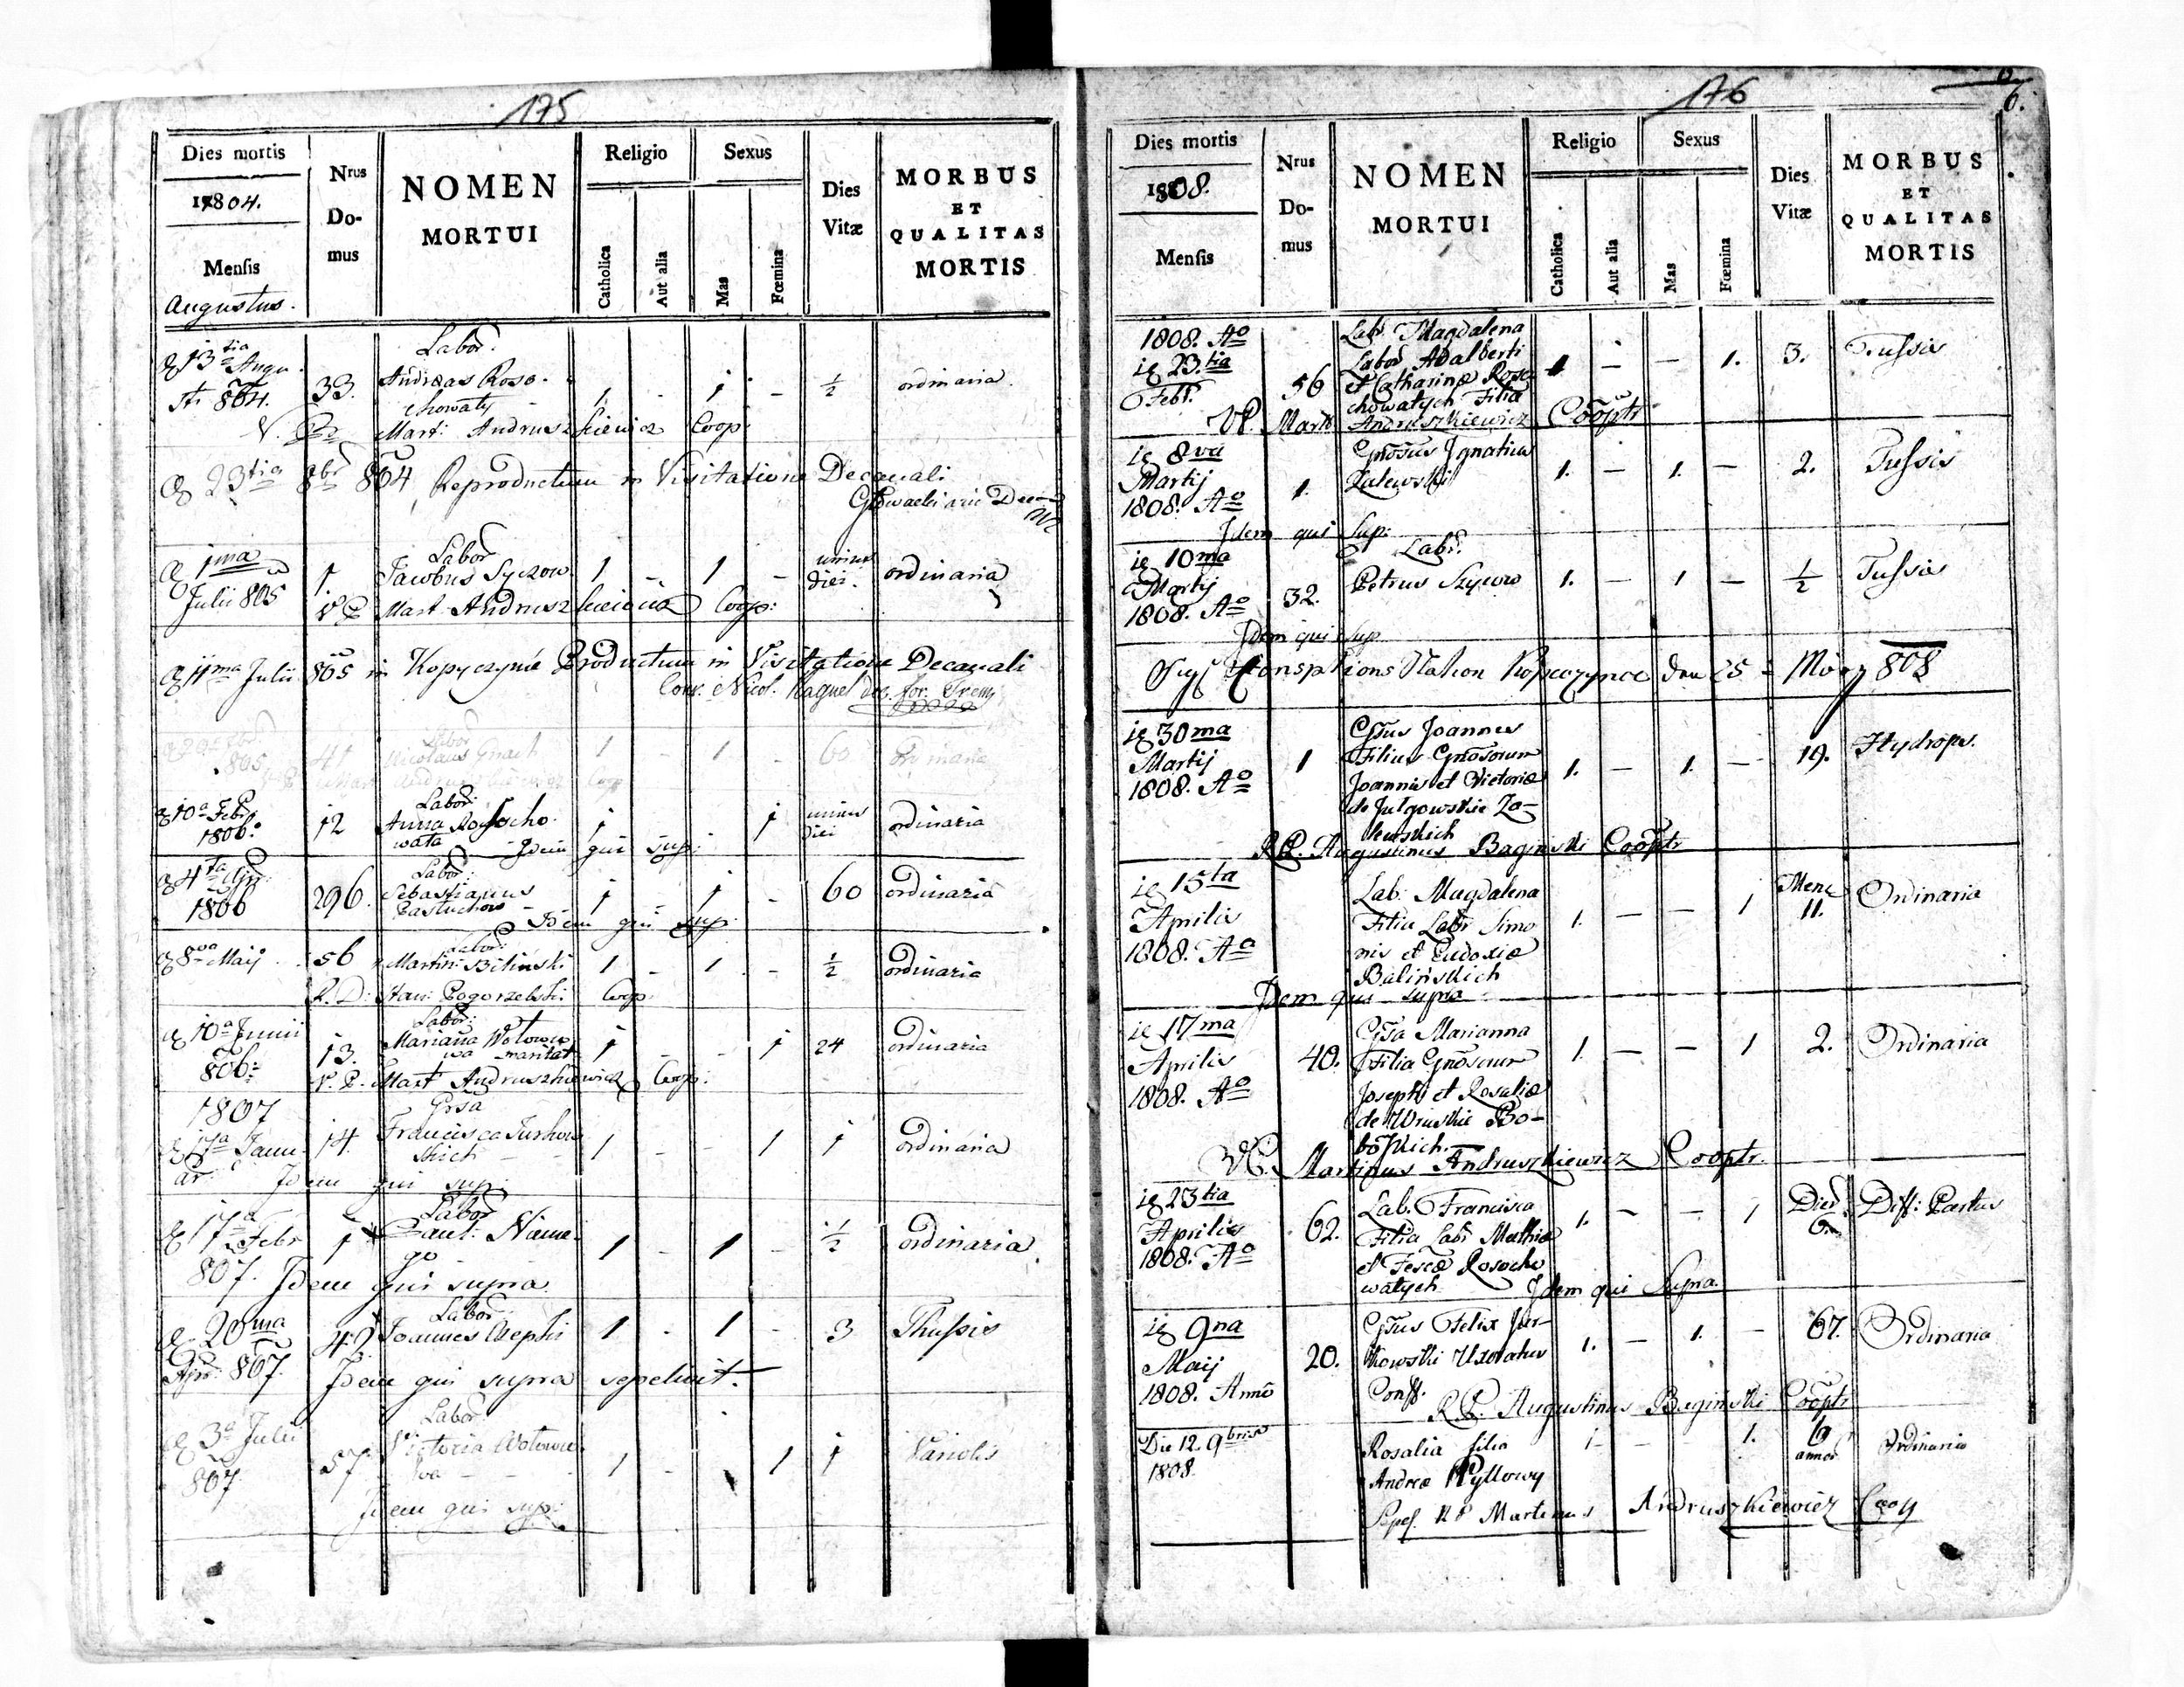 175
Dies mortis
1804.
Mensis
Augustus.
Nrus Do- mus
NOMEN
MORTUI
Religio
Catholica
Aut alia
Sexus
Mas
Fœmina
Dies Vitæ
MORBUS
ET
QUALITAS
MORTIS
Labor.
13tia Augu
sti 804. 33. Andreas Roso- 1 - 1 - 1/2 ordinaria
chowaty
Mart: Andruszkiewicz Coop:
23tia 8bris 804 Reproductum in Visitatione Decanali
Labor
1ma 1. Jacobus Syczow 1 - 1 - unius diei ordinaria
Julii 805
V P Mart Andruszkiewicz Coop:
11ma Julii 805 in Kopyczynie Productum in Visitatione Decanali
Labor
805 41 Nicolaus 1 - 1 - 60 ordinaria
Mart Andruszkiewicz Coop
Labor:
10a Febr 12 Anna Rosocho- 1 1 unius diei ordinaria
1806. wata Idem qui sup:
Labor:
4ta Apr: 296. Sebastianus 1 - 1 - 60 ordinaria
1806 Pastuchow - Idem qui sup:
Labor:
8va Maij 56 Martin: Biliński 1 - 1 - 1/2 ordinaria
R. D: Stan: Pogorzelski Coop
Labor:
10a Junii 13. Mariana Wołowo- 1 - - 1 24 ordinaria
806: wa maritata
V. P. Mart Andruszkiewicz Coop:
1807 Gnsa
17a Janu- 14. Francisca Turkow- 1 - - 1 1 ordinaria
ar: skich
Idem qui sup:
Labor
17a Febr 1 Paul: 1 - 1 - 1/2 ordinaria
807. Idem qui supra
Labor
20ma 42 Joannes 1 - 1 - 3 Thussis
Apr: 807. Idem qui supra sepelivit.
Labor
3a Julii 57 Victoria Wołowo- 1 - - 1 1 Variolis
807. wa
Idem qui sup:
176
6.
Dies mortis
1808.
Mensis
Nrus Do- mus
NOMEN
MORTUI
Religio
Catholica
Aut alia
Sexus
Mas
Fœmina
Dies Vitæ
MORBUS
ET
QUALITAS
MORTIS
1808. Ao Lab. Magdalena
23.tia Labor Adalberti 1. - — 1. 3. Tussis
Febr. 56 et Catharinæ Roso-
chowatych Filia
VP. Mart. Andruszkiewicz Cooptr
8va Gnosus Ignatius
Martij 1. Zalewski 1. — 1. — 2. Tussis
1808. Ao
Idem qui Sup:
10ma Labr.
Martij 32. Petrus Szycow 1. — 1 — 1/2 Tussis
1808. Ao
Idem qui Sup.
Consptions Station Kopeczynce den 25 März 808
30ma Gsus Joannes
Martij 1 Filius Gnosorum 1. — 1. — 19. Hydrops.
1808. Ao Joannis et Victoriæ
de Julgowskie Za-
lewskich
R.P. Augustinus Baginski Cooptr
15ta Lab. Magdalena Mens
Aprilis Filia Labr Simo 1. — — 1 11. Ordinaria
1808. Ao nis et Eudoxiæ
Balińskich
Idem qui supra
17ma Gsa Marianna
Aprilis 40. Filia Gnosorum 1. — — 1 2. Ordinaria
1808. Ao Josephi et Rosaliæ
VP. Martinus Andruszkiewicz Cooptr.
23tia Lab. Francisca Dier
Aprilis 62. Filia Labr Mathiæ 1. — — 1 6. Diff: Partus
1808. Ao et Rosocho
watych Idem qui Supra.
9na Gsus Felix Jur-
Maij 20. kowski Uxoratus 1. — 1. — 67. Ordinaria
1808. Anno Conff.
R.P. Augustinus Baginski Cooptr
Die 12. 9bris Rosalia filia 1- - 1. 6 Ordinaria
1808. Andreæ annor
Martinus Andruszkiewicz